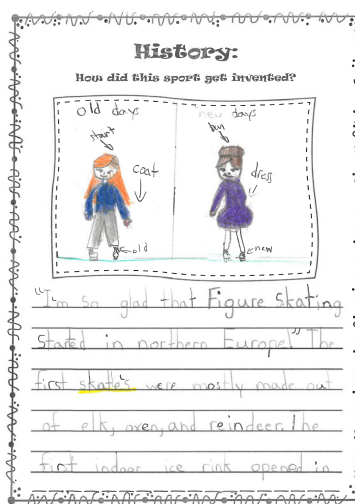 History:
How did this sport get invented?
old days
new days
bun
coat
dress
old
new
"I'm so glad that Figure Skating
Stated in northern Europe!" The
first skate's were mostly made out
of elk, oxen, and reindeer. The
first indoor ice rink opened in